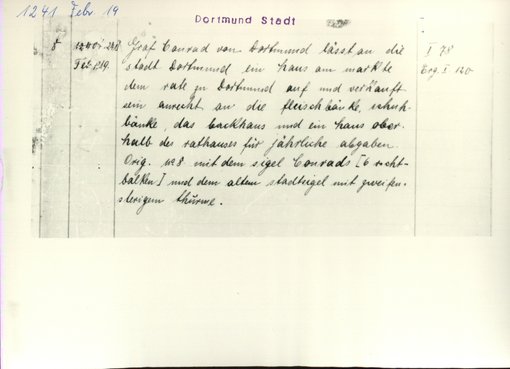 1241 Febr 19
Dortmund Stadt
8 Graf Conrad von Dortmund lässt an die I 78
Feb. 19. stadt Dortmund ein haus am markte Erg. I 120
dem rate zu Dortmund auf und verkauft
sein anrecht an die fleischbänke, schuh-
bänke, das backhaus und ein haus ober-
halb des rathauses für jährliche abgaben.
Orig. no 8 mit dem sigel Conrads [6 recht-
balken] und dem altem stadtsigel mit zweifen-
sterigem thurme.